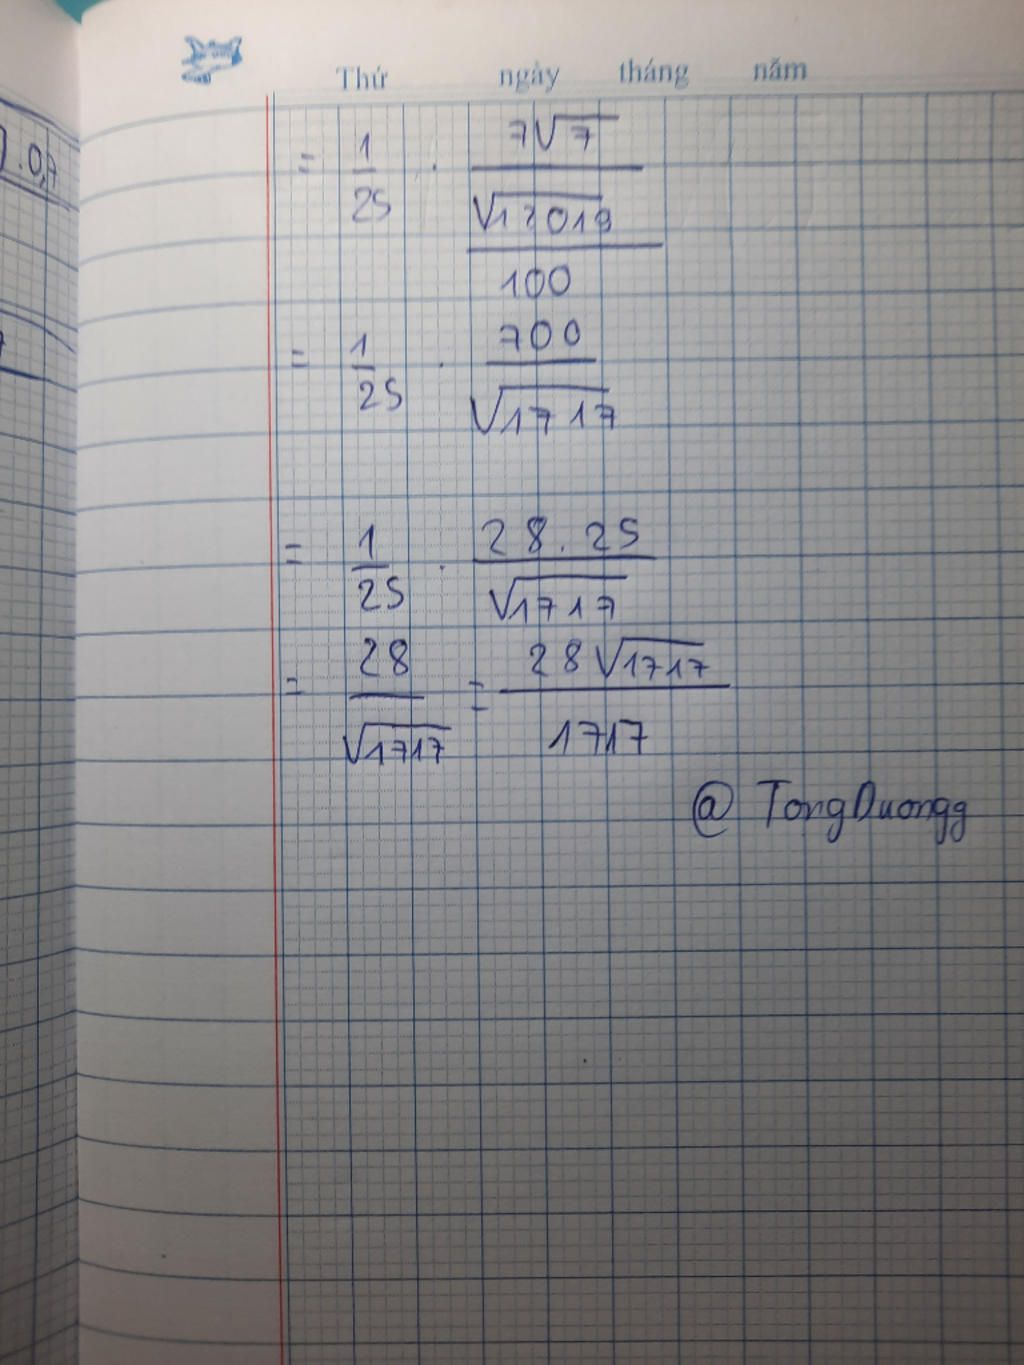 Thứ ngày tháng năm
] . 0,7
= 1/25 . (7√7)/(√12019/100)
= 1/25 . 700/√1717
= 1/25 . (28 . 25)/√1717
= 28/√1717 = 28√1717/1717
@ TongDuongg